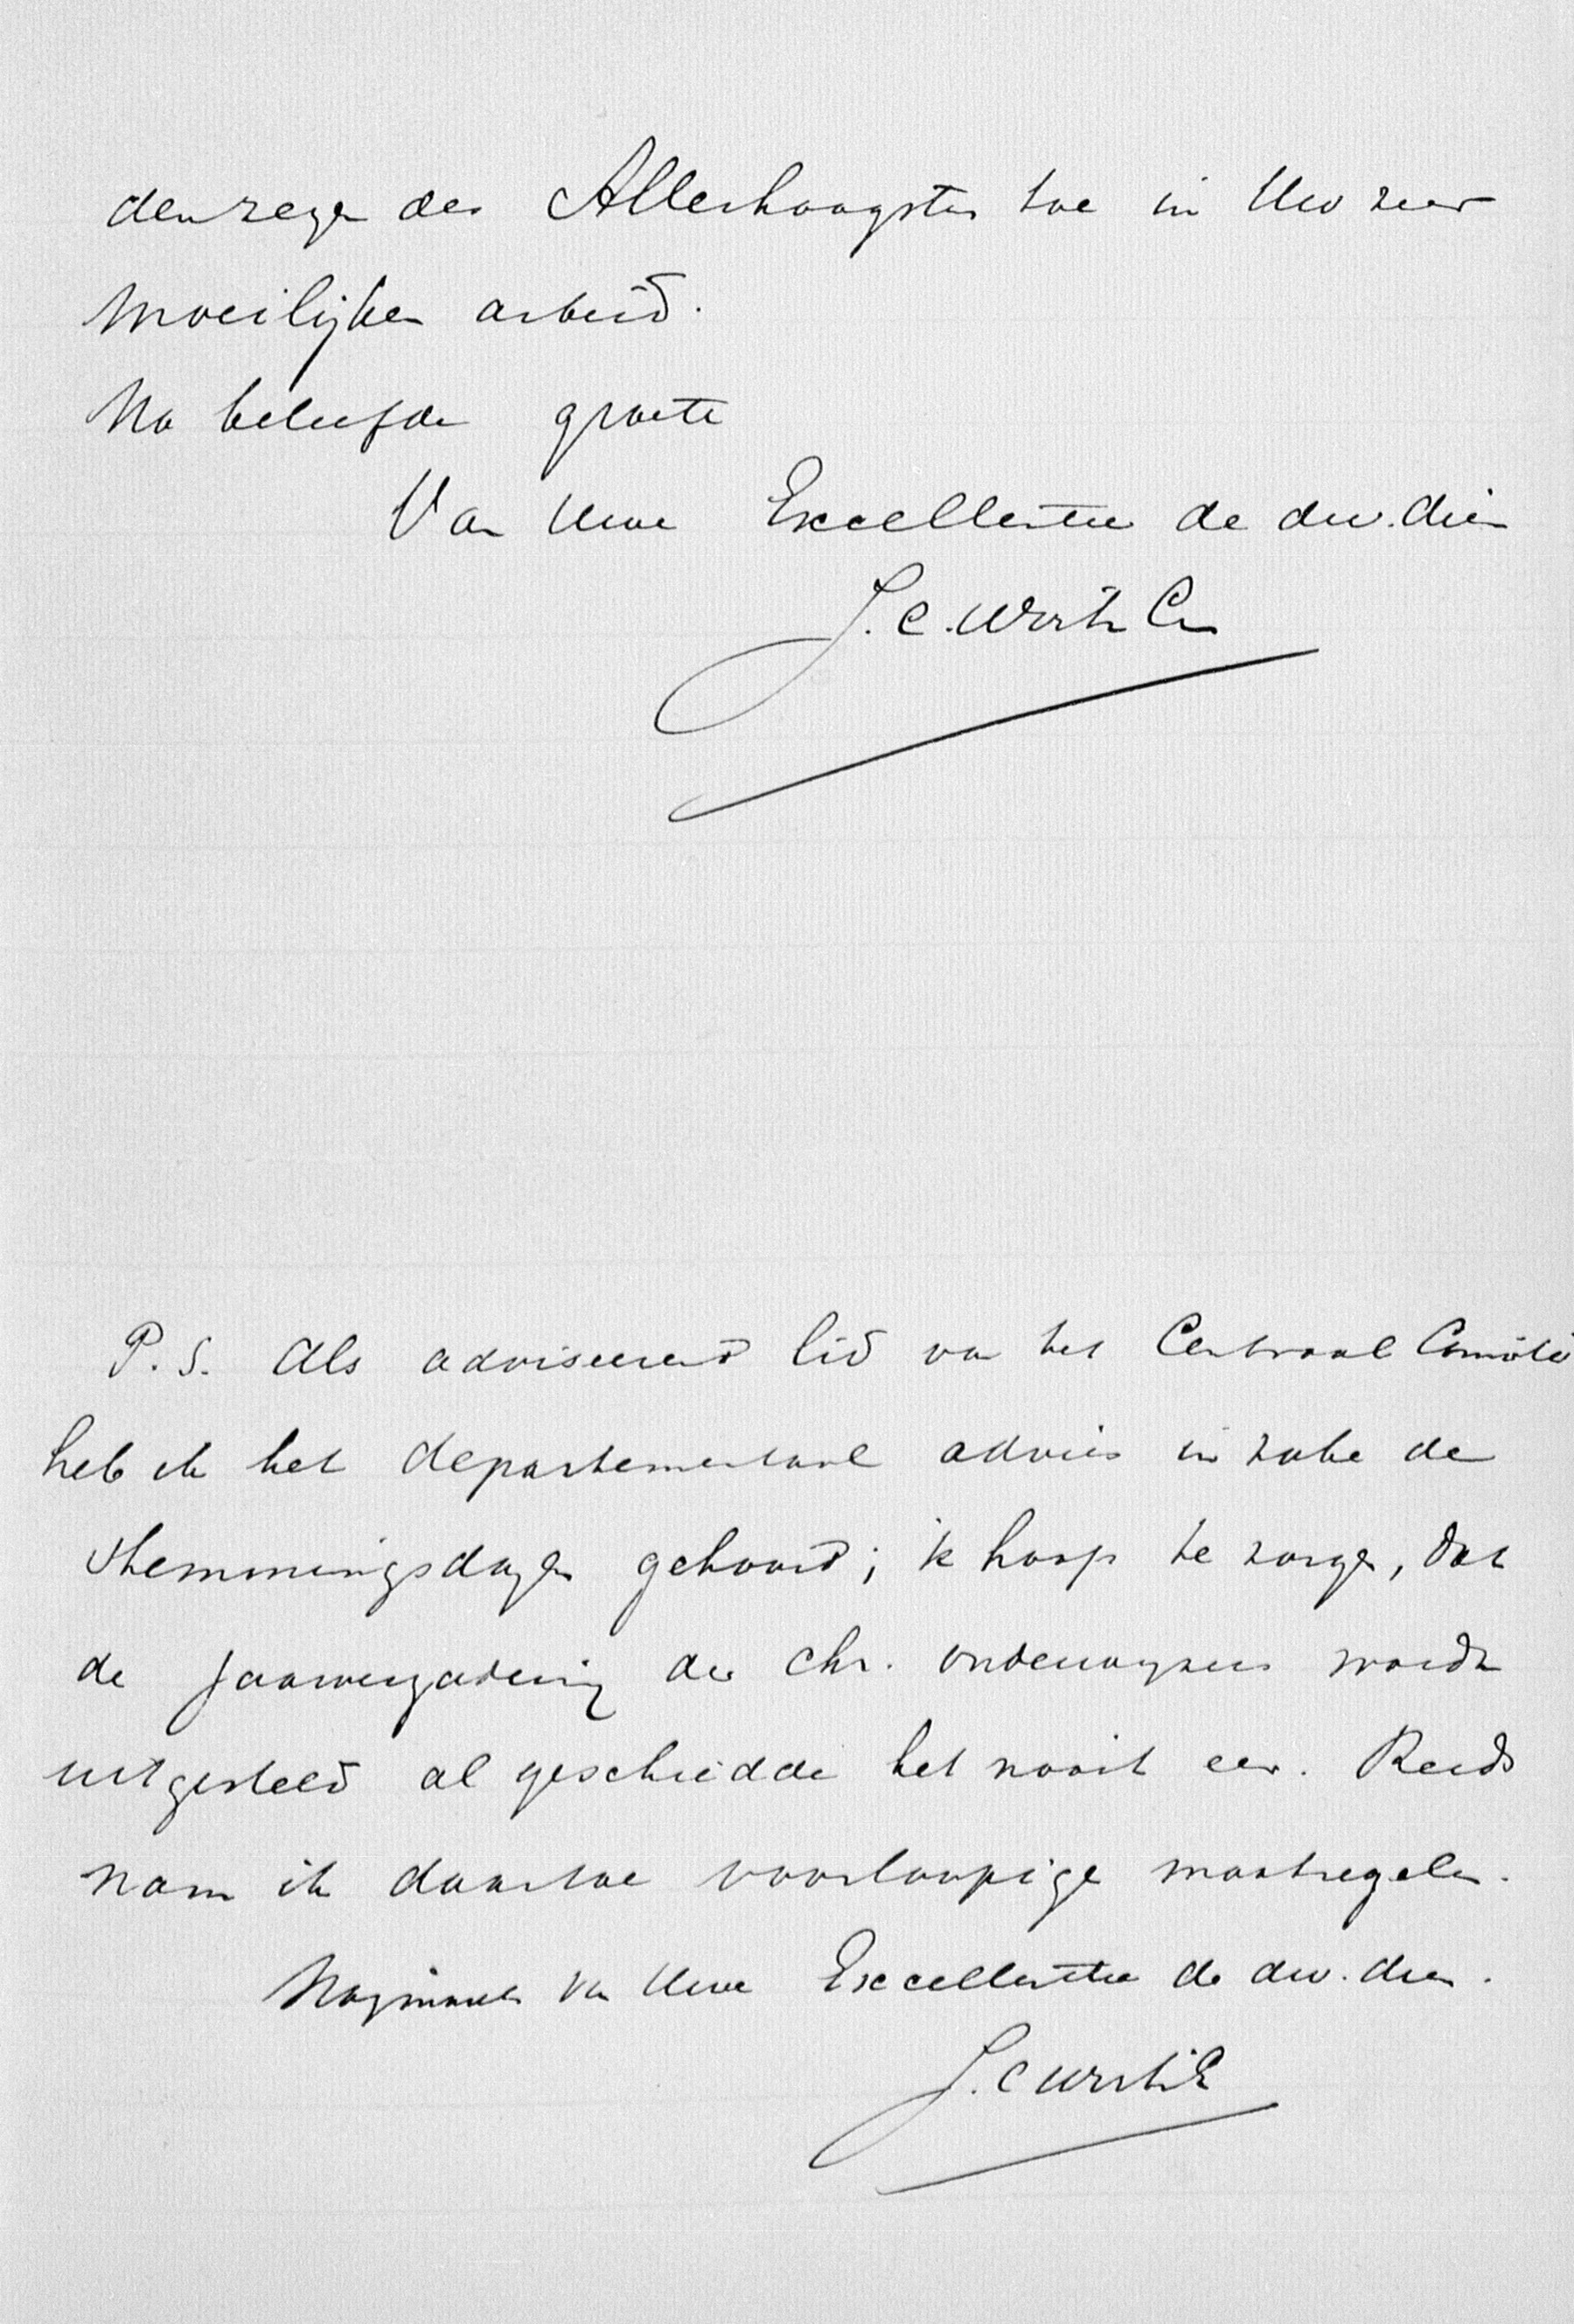 den zegen des Allerhoogsten toe in Uw zeer
moeilijken arbeid.
Na beleefde groete
Van Uwe Excellentie de dw. dien
J. C. Wirtz Cz
P. S. Als adviseerend lid van het Centraal Comité
heb ik het departementaal advies in zake de
stemmingsdagen gehoord; ik hoop te zorgen, dat
de jaarvergadering der chr. onderwijzers wordt
uitgesteld al geschiedde het nooit eer. Reeds
nam ik daartoe voorloopige maatregelen.
Nogmaals van Uwe Excellentie de dw. dien.
J. C. Wirtz